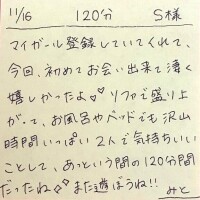 11/16 120分 S様
マイガール登録していてくれて、
今回、初めてお会い出来て凄く
嬉しかったよ♡♡ ソファで盛り上
がって、お風呂やベッドでも沢山
時間いっぱい2人で気持ちいい
ことして、あっという間の120分間
だったね♡♡ また遊ぼうね!!
みと